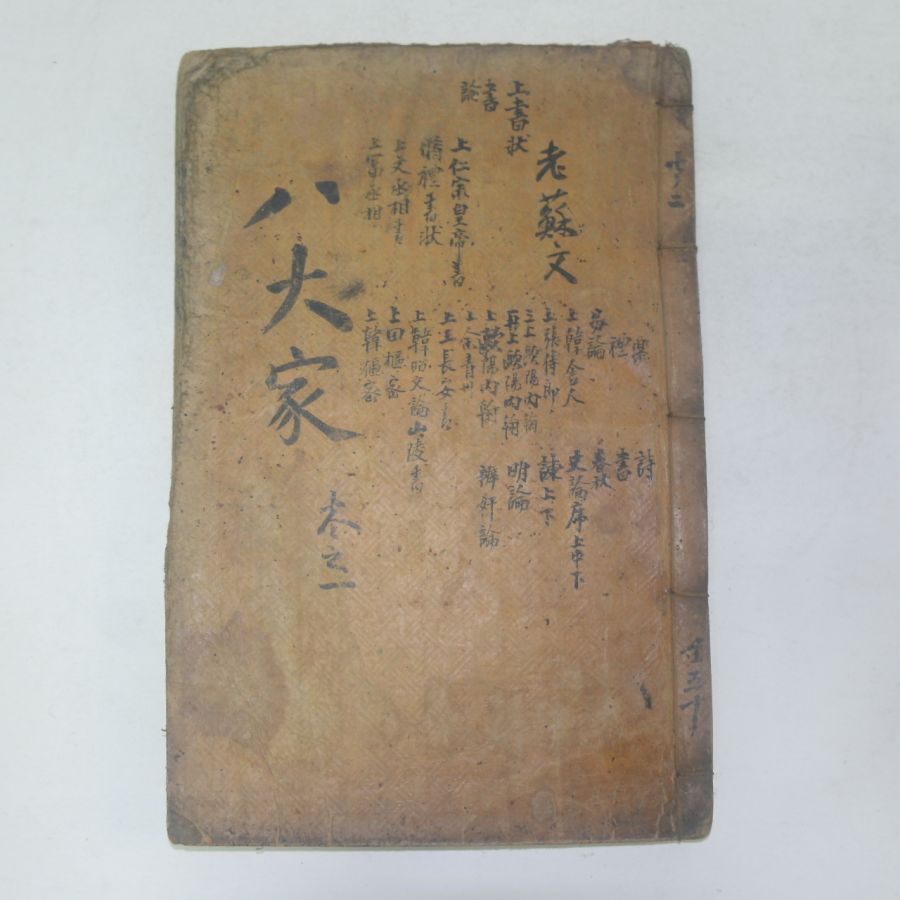 老蘇文
上書狀
書
論
上仁宗皇帝書
上文丞相書
上富丞相
樂
禮
易論
上韓舍人
上張侍郎
三上歐陽內翰
再上歐陽內翰
上歐陽內翰
上余青州
上王長安書
上韓昭文論山陵書
上田樞密
上韓樞密
詩
書
春秋
史論序上中下
諫上下
明論
辨奸論
八大家
卷之一
五十